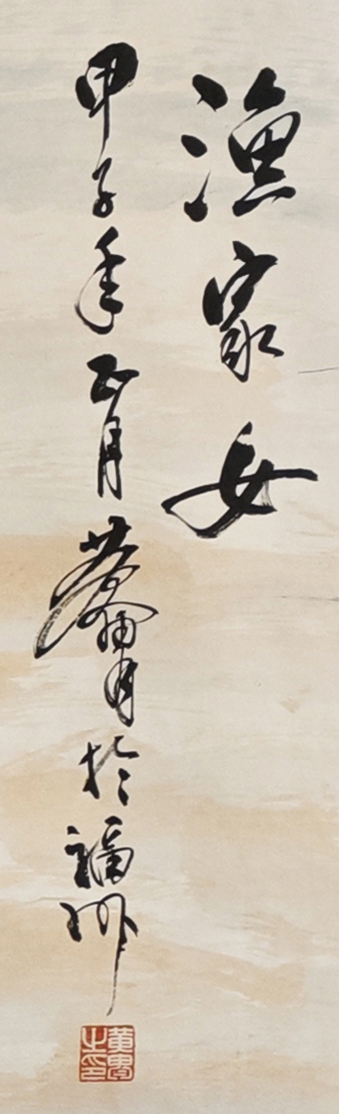 渔家女
甲子年正月黄胄於福州
黄胄之印